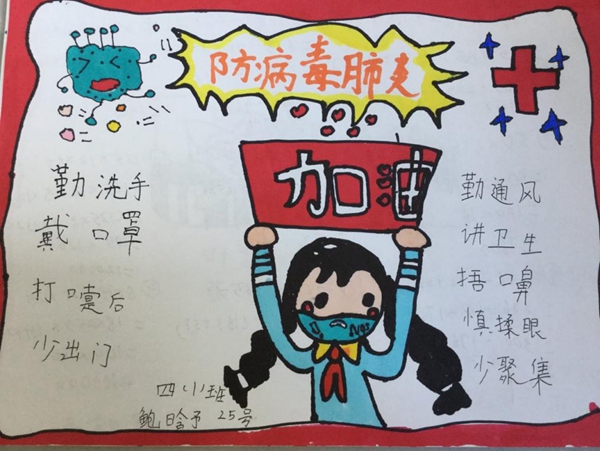 防病毒肺炎
加油
勤洗手
戴口罩
打嚏后
少出门
勤通风
讲卫生
捂口鼻
慎揉眼
少聚集
四(1)班
鲍晗予 25号